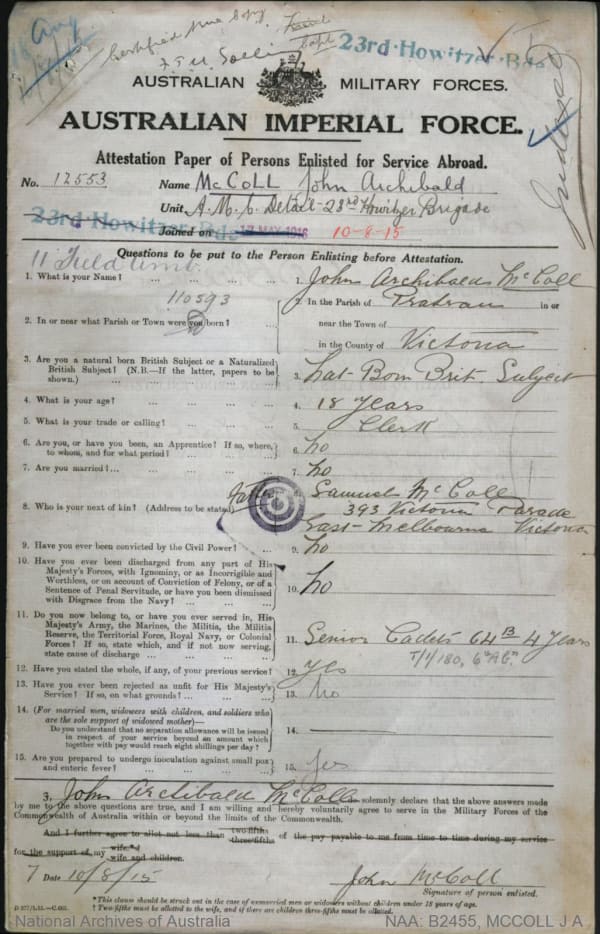 Certified true Copy
23rd Howitzer Bde
AUSTRALIAN MILITARY FORCES.
AUSTRALIAN IMPERIAL FORCE.
Indexed
Attestation Paper of Persons Enlisted for Service Abroad.
No. 12553 Name McColl John Archibald
Unit A.M.C. Detail 23rd Howitzer Brigade
23rd Howitzer Bde
Joined on 10-8-15
Questions to be put to the Person Enlisting before Attestation.
11 Field Amb.
1. What is your Name? ... 1. John Archibald McColl
110593
2. In or near what Parish or Town were you born? ... 2. In the Parish of Prahran in or
near the Town of
in the County of Victoria
3. Are you a natural born British Subject or a Naturalized
British Subject? (N.B.—If the latter, papers to be
shown.) ... 3. Nat. Born Brit. Subject
4. What is your age? ... 4. 18 Years
5. What is your trade or calling? ... 5. Clerk
6. Are you, or have you been, an Apprentice? If so, where,
to whom, and for what period? ... 6. No
7. Are you married? ... 7. No
8. Who is your next of kin? (Address to be stated) Father 8. Samuel McColl
393 Victoria Parade
East Melbourne Victoria
9. Have you ever been convicted by the Civil Power? ... 9. No
10. Have you ever been discharged from any part of His
Majesty's Forces, with Ignominy, or as Incorrigible and
Worthless, or on account of Conviction of Felony, or of a
Sentence of Penal Servitude, or have you been dismissed
with Disgrace from the Navy? ... 10. No
11. Do you now belong to, or have you ever served in, His
Majesty's Army, the Marines, the Militia, the Militia
Reserve, the Territorial Force, Royal Navy, or Colonial
Forces? If so, state which, and if not now serving,
state cause of discharge ... 11. Senior Cadets 64B 4 Years
12. Have you stated the whole, if any, of your previous service? 12. Yes
13. Have you ever been rejected as unfit for His Majesty's
Service? If so, on what grounds? ... 13. No
14. (For married men, widowers with children, and soldiers who
are the sole support of widowed mother)—
Do you understand that no separation allowance will be issued
in respect of your service beyond an amount which
together with pay would reach eight shillings per day? 14.
15. Are you prepared to undergo inoculation against small pox
and enteric fever? ... 15. Yes
I, John Archibald McColl solemnly declare that the above answers made
by me to the above questions are true, and I am willing and hereby voluntarily agree to serve in the Military Forces of the
Commonwealth of Australia within or beyond the limits of the Commonwealth.
And I further agree to allot not less than two-fifths three-fifths of the pay payable to me from time to time during my service
for the support of my wife. wife and children.
Date 10/8/15 John McColl
Signature of person enlisted.
*This clause should be struck out in the case of unmarried men or widowers without children under 18 years of age.
† Two-fifths must be allotted to the wife, and if there are children three-fifths must be allotted.
National Archives of Australia NAA: B2455, MCCOLL J A